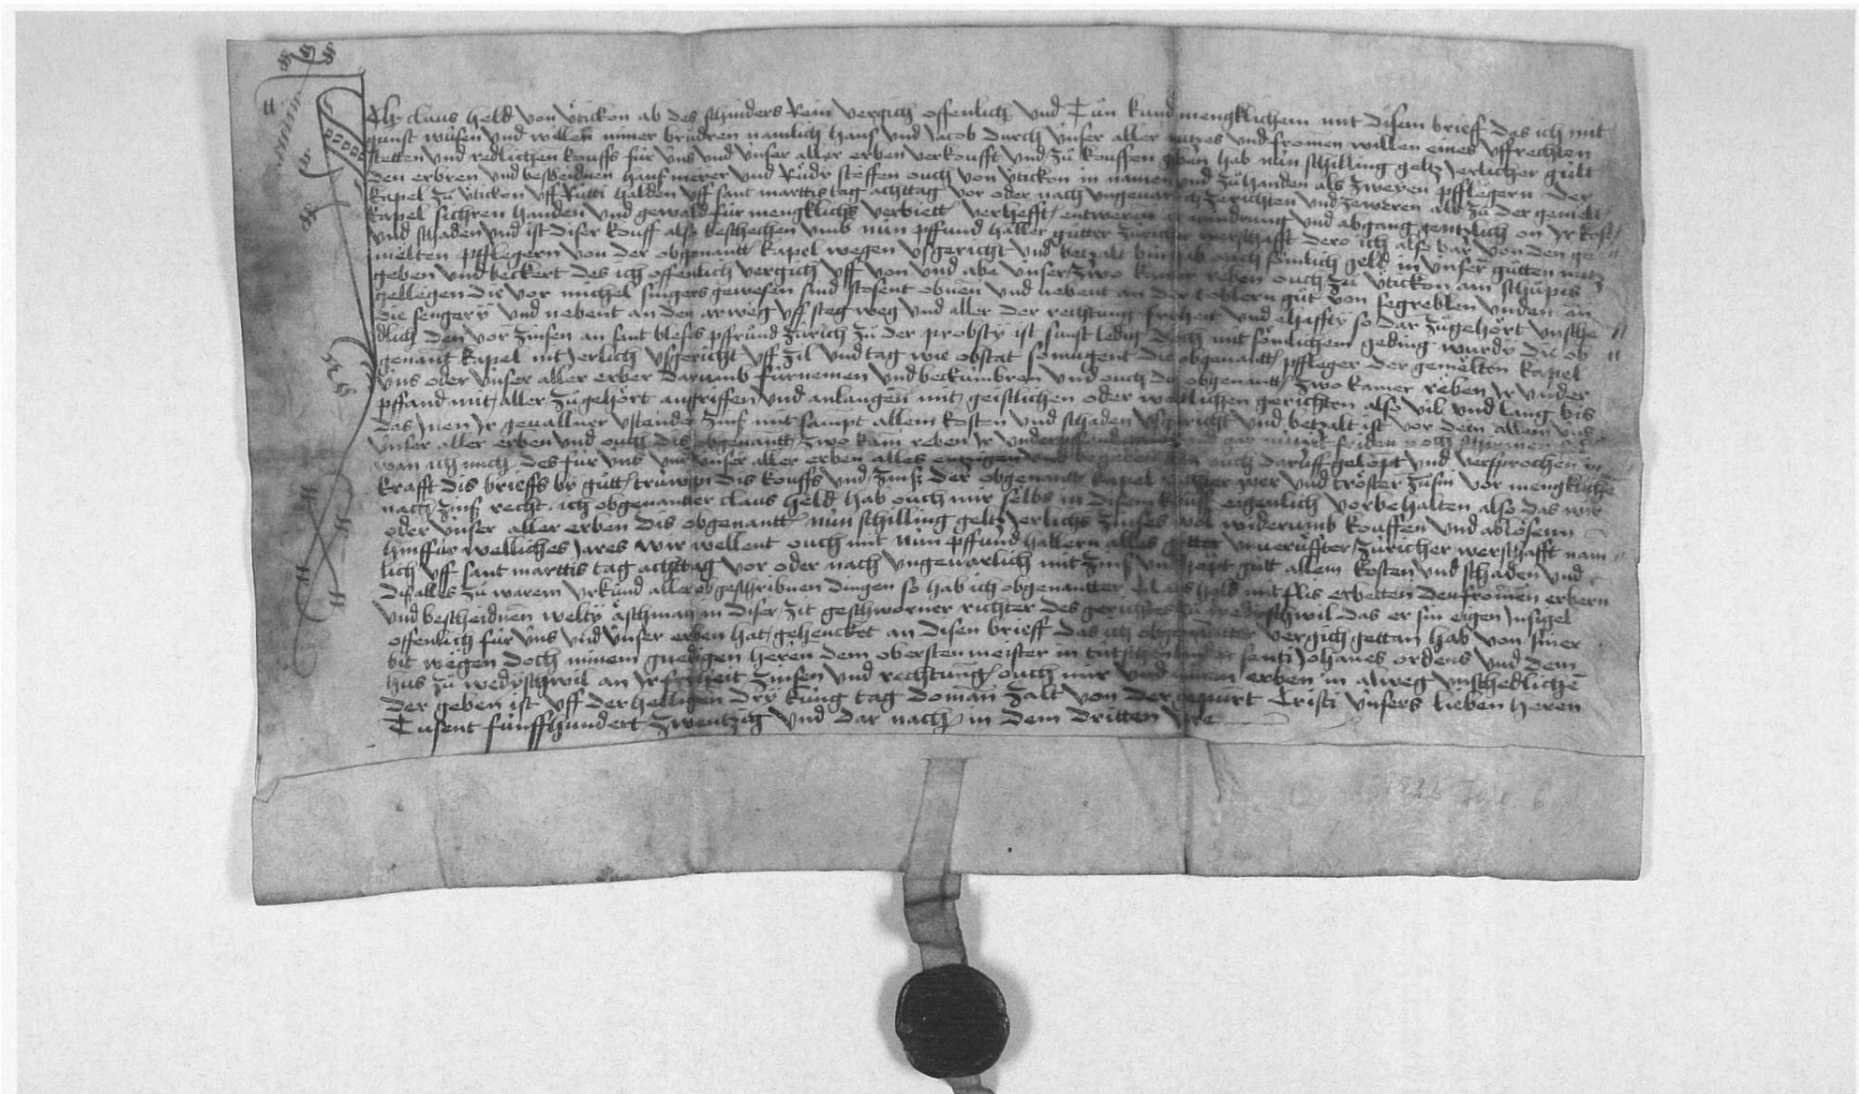 Ich claus held von ůtickon ab des schniders Rein vergich offenlich und Tůn kund mengklichem mit disem brieff das ich mit
gunst wüsen und willen miner brůdren namlich hans und Jacob durch unser aller nutzes und fromen willen eines uffrechten
stetten und redlichen kouffs für üns und ünser aller erben verkoufft und zů kouffen geben hab nün schilling geltz Jerlicher gült
den erbren und bescheidnen hans meyer und Růdy steffen ouch von ůtickon in namen und zů handen als zweyen pfflegern der
kapel zů ůtickon uff Rütti halden uff sant martis tag achttag vor oder nach ungevarlich zerichten und zeweren als zů der gemelt
kapel sichren handen und gewald für mengklichs verbiett verhefft entweren mindrung und abgang gentzlich on Ir kost
und schaden und ist diser kouff also beschechen umb nün pffund haller gůtter züricher werschafft dero ich also bar von den ge
melten pfflegern von der obgenantt kapel wegen usgericht und betzalt bin hab ouch sömlich geld in ünser gůtten nutz
geben und bekert des ich offenlich vergich uff von und abe ünser zwo kamer reben ouch zů ůtickon am schüpis
gellegen die vor michel singers gewesen sind stosent obnen und nebent an der toblern gůt von segreblen unden an
die sengery und nebent an den arweg uff steg weg und aller der rechtung friheit und ehaffty so dar zů gehört unsche
dlich den vor zinsen an sant blesis pfrůnd zürich zů der probsty ist sunst ledig doch mit sömlichem geding würdy die ob
genant kapel nit Jerlich usgericht uff zil und tag wie obstat so mugent die obgenantt pffleger der gemelten kapel
üns oder ünser aller erber darumb fürnemen und beckümbren und ouch die obgenantt zwo kamer reben Ir under
pffand mit aller zů gehört angriffen und anlangen mit geistlichen oder weltlichen gerichten also vil und lang bis
das Inen Ir gevallner ustender zinß mit sampt allem kosten und schaden usgericht und betzalt ist vor dem allem uns
ünser aller erben und ouch die obgenantt zwo kam reben Ir underpffand gar nünt friden noch schirmen
wan ich mich des für üns und ünser aller erben alles entzigen und begeben ouch daruff gelopt und versprochen in
krafft dis brieffs by gůtt trüwen dis kouffs und zinß der obgenantt kapel rechter wer und tröster zů sin vor mengklichē
nach zinß recht ich obgenantter claus held hab ouch mir selbs in disem kouff eigenlich vorbehalten also das wir
oder ünser aller erben dis obgenantt nün schilling geltz Jerlichs zinses wol widerumb kouffen und ablösenn
hinffür welliches Jares wir wellent ouch mit nün pffund hallern alles gůtter unverüffter züricher werschafft nam
lich uff sant marttis tag achttag vor oder nach ungevarlich mit zinß und hopt gůt allem kosten und schaden und
dis alles zů warem urkünd aller obgeschribnen dingen so hab ich obgenantter claus held mit flis erbetten den fromen erbern
und bescheidnen welty äschman in diser zit geschworner richter des gerichtes zů wedyschwil das er sin eigen Insigel
offenlich für üns und ünser erben hat gehencket an disen brieff das ich obgenantter vergich gettan hab von siner
bit wegen doch minem gnedigen heren dem obersten meister in tütschen landen sanct Johanes ordens und dem
hus zů wedyschwil an Ir friheit zinsen und rechtung ouch mir und minen erben in alweg unschedliche
Der geben ist uff der helligen dry küng tag do man zalt von der gepürt Cristi ünsers lieben heren
Tusent fünffhundert zwentzig und dar nach in dem dritten Jare